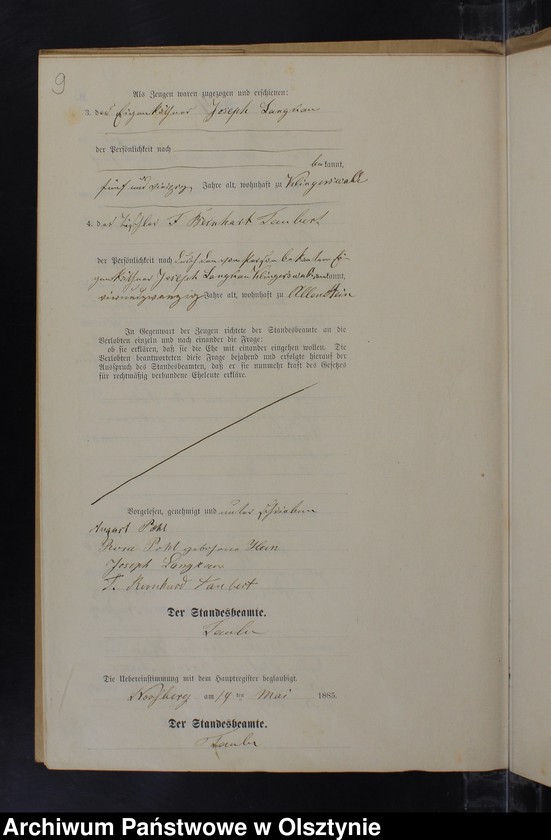 9
Als Zeugen waren zugezogen und erschienen:
3. der Eigenkäthner Joseph Langkau
der Persönlichkeit nach
bekannt,
fünf und vierzig Jahre alt, wohnhaft zu Klingerswalde
4. der Tischler F. Bernhart Taubert
der Persönlichkeit nach durch den von Person bekannten Ei-
genkäthner Joseph Langkau Klingerswalde anerkannt,
vierundzwanzig Jahre alt, wohnhaft zu Allenstein
In Gegenwart der Zeugen richtete der Standesbeamte an die
Verlobten einzeln und nach einander die Frage:
ob sie erklären, daß sie die Ehe mit einander eingehen wollen. Die
Verlobten beantworteten diese Frage bejahend und erfolgte hierauf der
Ausspruch des Standesbeamten, daß er sie nunmehr kraft des Gesetzes
für rechtmäßig verbundene Eheleute erkläre.
Vorgelesen, genehmigt und unterschrieben
August Pohl
Rosa Pohl geborene Hein
Joseph Langkau
F. Bernhard Taubert
Der Standesbeamte.
Die Uebereinstimmung mit dem Hauptregister beglaubigt.
am 14 ten Mai 1885
Der Standesbeamte.
Archiwum Państwowe w Olsztynie